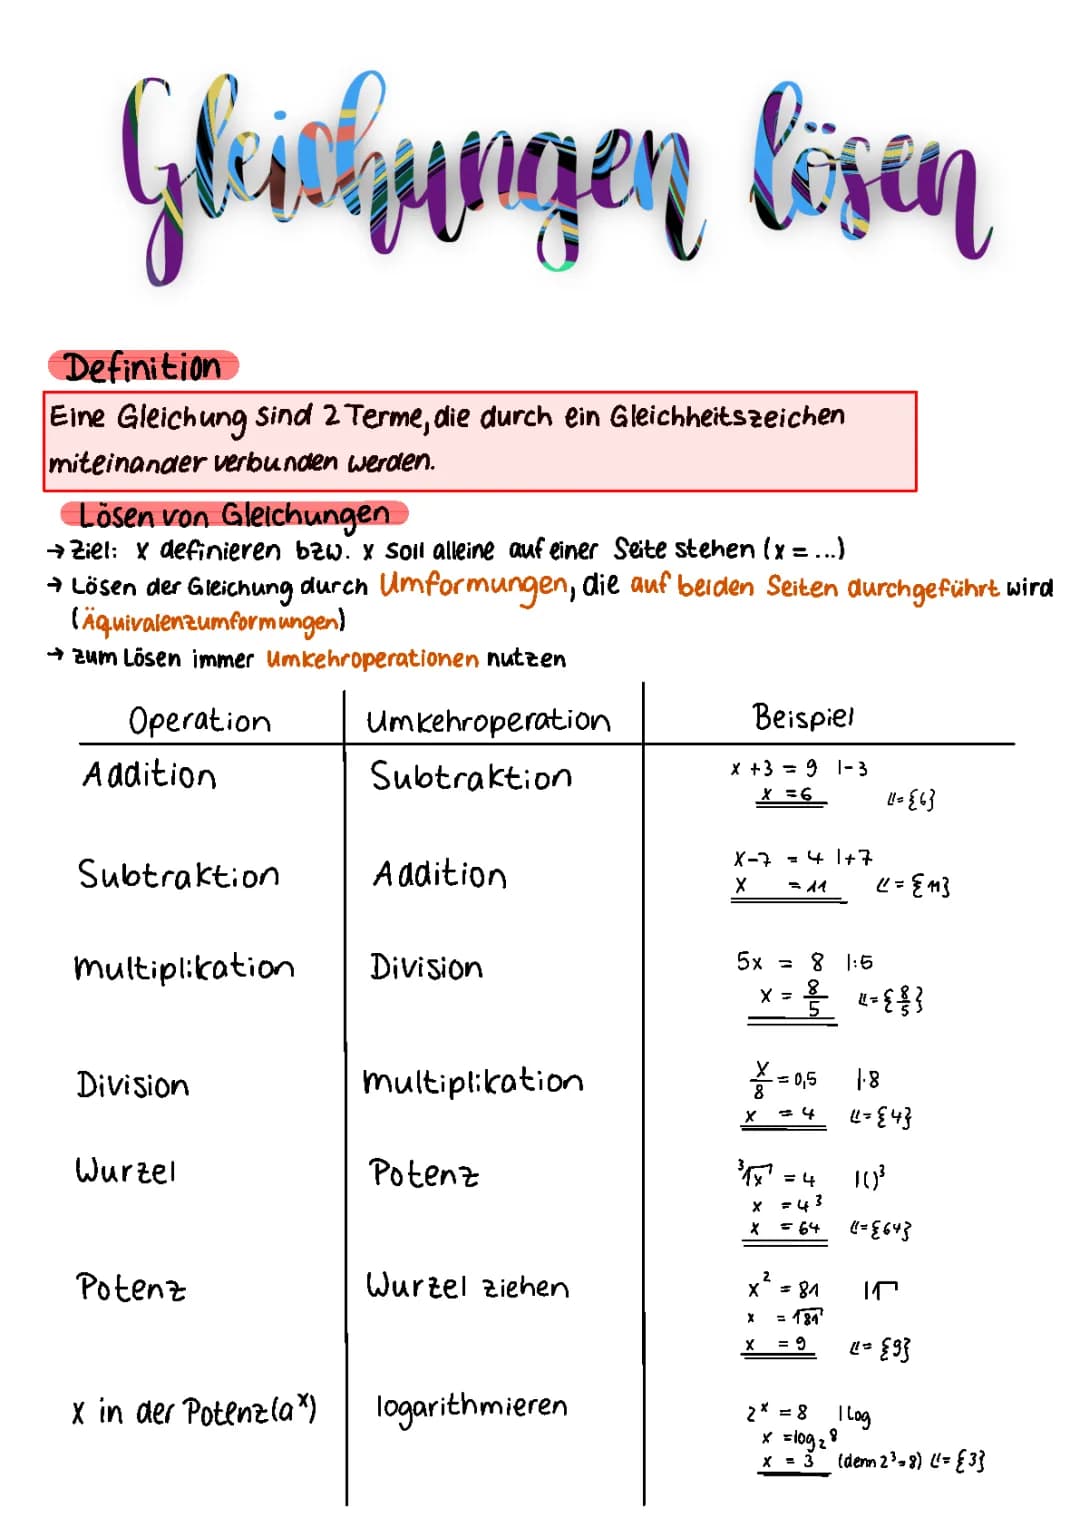 Gleichungen lösen
Definition
Eine Gleichung sind 2 Terme, die durch ein Gleichheitszeichen
miteinander verbunden werden.
Lösen von Gleichungen
→ Ziel: x definieren bzw. x soll alleine auf einer Seite stehen (x = ...)
→ Lösen der Gleichung durch Umformungen, die auf beiden Seiten durchgeführt wird
(Äquivalenzumformungen)
→ zum Lösen immer Umkehroperationen nutzen
Operation Umkehroperation Beispiel
Addition Subtraktion x + 3 = 9 |-3
x = 6 𝕃={6}
Subtraktion Addition x-7 = 4 |+7
x = 11 𝕃={11}
Multiplikation Division 5x = 8 |:5
x = 8/5 𝕃={8/5}
Division Multiplikation x/8 = 0,5 |·8
x = 4 𝕃={4}
Wurzel Potenz ³√x = 4 |()³
x = 4³
x = 64 𝕃={64}
Potenz Wurzel ziehen x² = 81 |√
x = √81
x = 9 𝕃={9}
x in der Potenz (aˣ) logarithmieren 2ˣ = 8 |Log
x = log₂8
x = 3 (denn 2³=8) 𝕃={3}